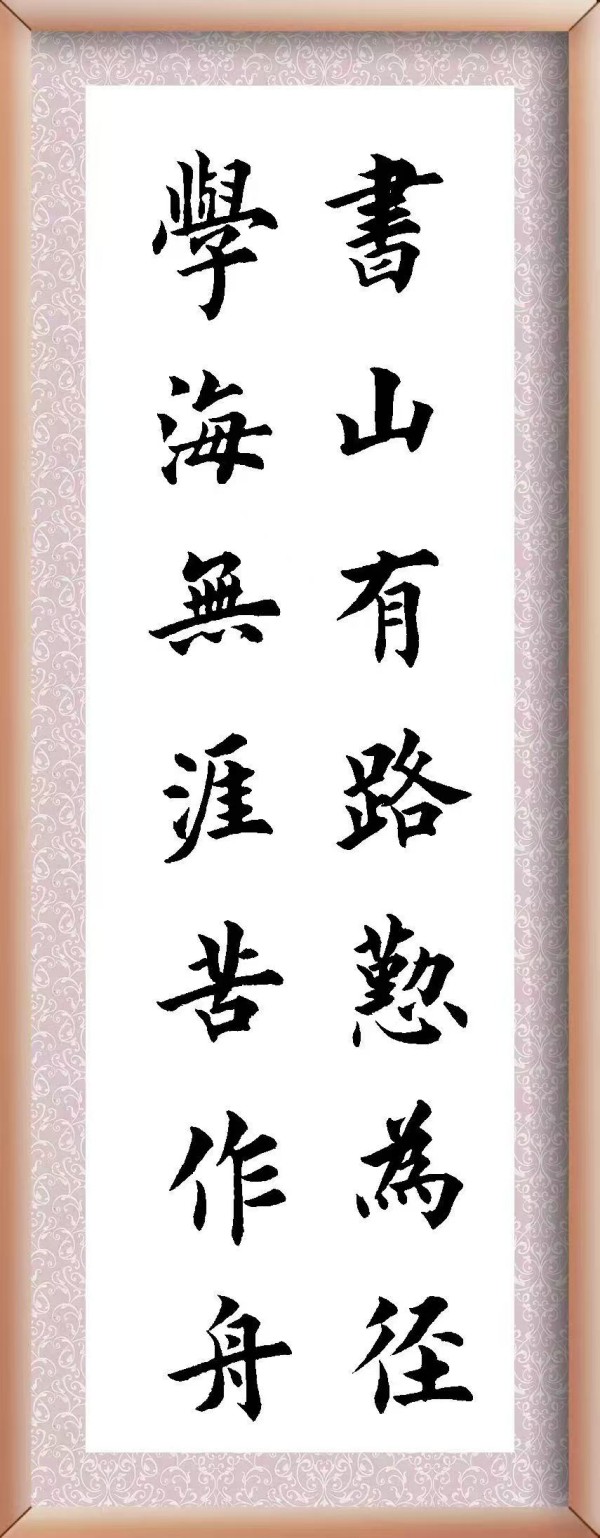 書山有路懃為径
學海無涯苦作舟